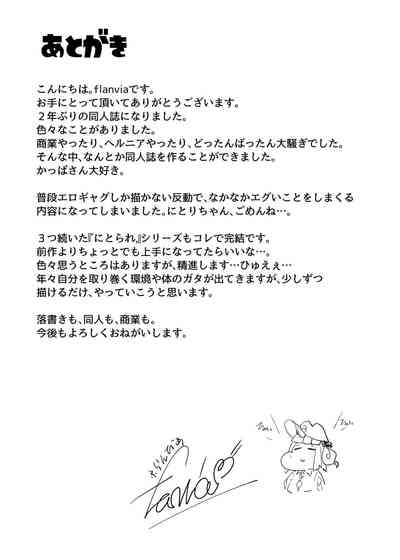 あとがき
こんにちは。flanviaです。
お手にとって頂いてありがとうございます。
２年ぶりの同人誌になりました。
色々なことがありました。
商業やったり、ヘルニアやったり、どったんばったん大騒ぎでした。
そんな中、なんとか同人誌を作ることができました。
かっぱさん大好き。
普段エロギャグしか描かない反動で、なかなかエグいことをしまくる
内容になってしまいました。にとりちゃん、ごめんね…。
３つ続いた『にとられ』シリーズもコレで完結です。
前作よりちょっとでも上手になってたらいいな…。
色々思うところはありますが、精進します…ひゅえぇ…
年々自分を取り巻く環境や体のガタが出てきますが、少しずつ
描けるだけ、やっていこうと思います。
落書きも、同人も、商業も。
今後もよろしくおねがいします。
ふらんびあ